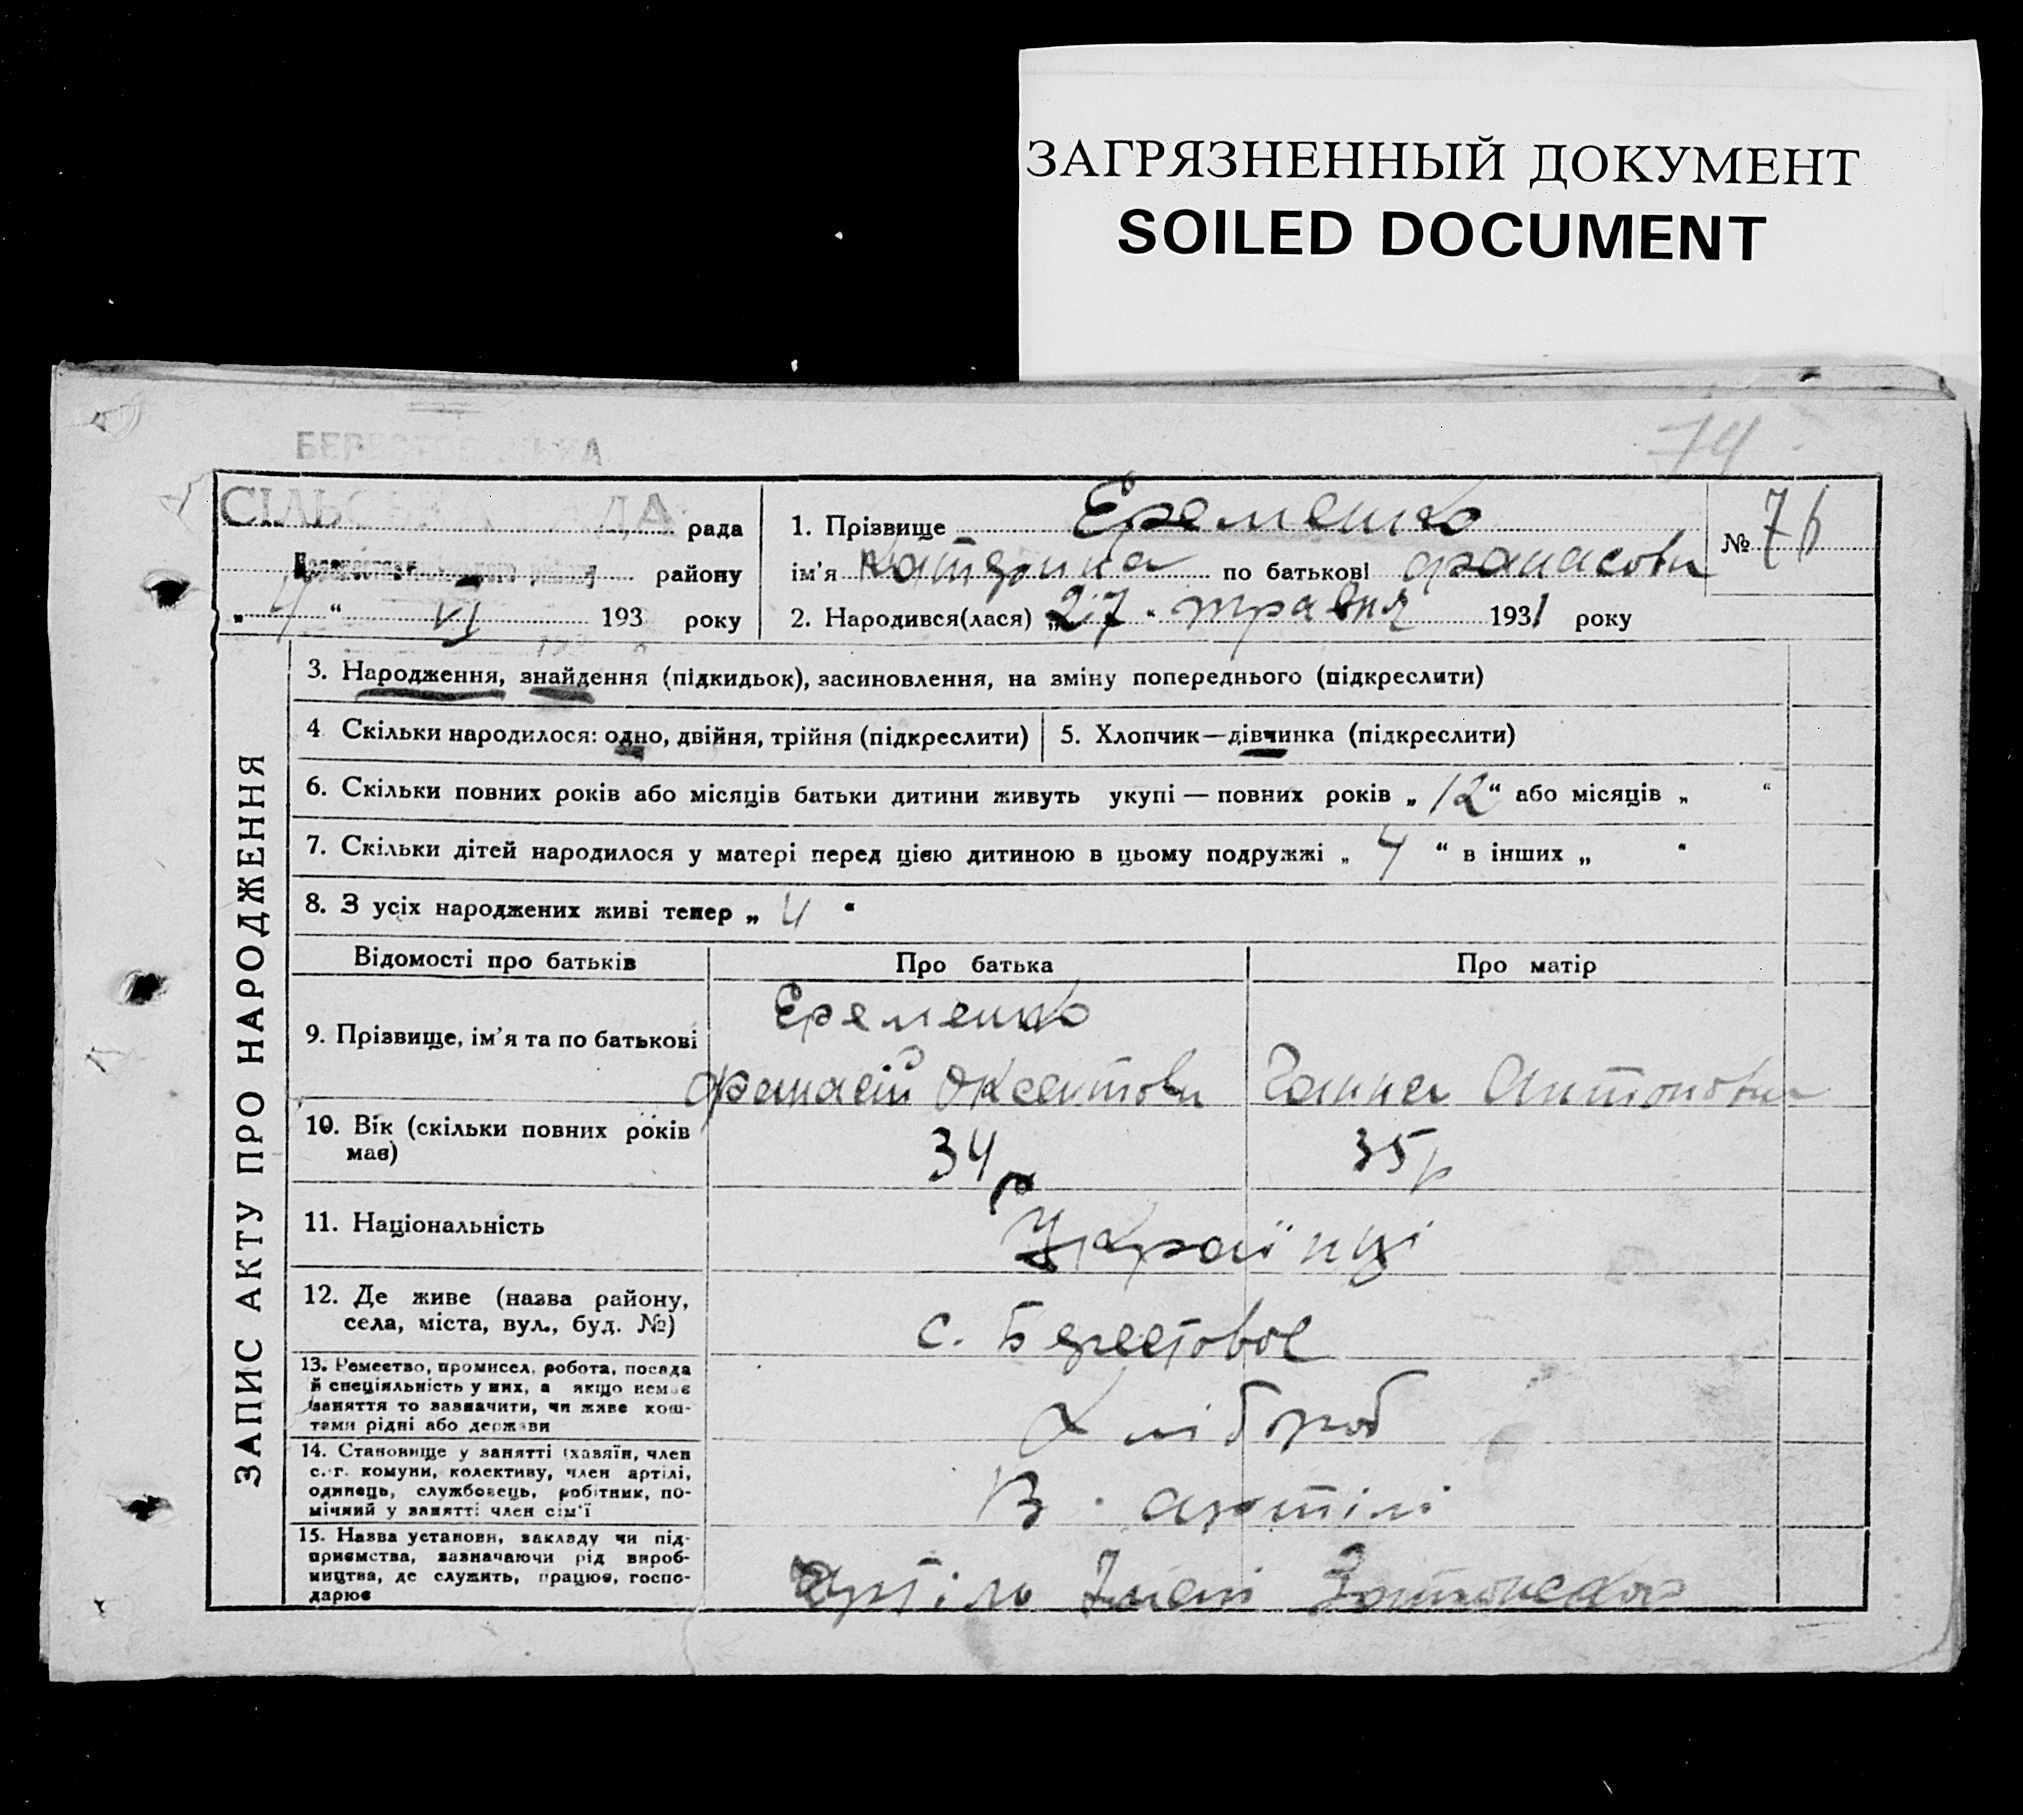 ЗАГРЯЗНЕННЫЙ ДОКУМЕНТ
SOILED DOCUMENT
74
СІЛЬСЬКА РАДА рада
району
„ 4 “ VI 193 року
1. Прізвище Еременко
ім'я Катерина по батькові Афанасовн
№ 76
2. Народився(лася) „ 27 “ травня 1931 року
ЗАПИС АКТУ ПРО НАРОДЖЕННЯ
3. Народження, знайдення (підкидьок), засиновлення, на зміну попереднього (підкреслити)
4 Скільки народилося: одно, двійня, трійня (підкреслити)
5. Хлопчик—дівчинка (підкреслити)
6. Скільки повних років або місяців батьки дитини живуть укупі — повних років „ 12 “ або місяців „ “
7. Скільки дітей народилося у матері перед цією дитиною в цьому подружжі „ 4 “ в інших „ “
8. З усіх народжених живі тепер „ 4 “
Відомості про батьків
Про батька
Про матір
9. Прізвище, ім'я та по батькові
Еременко
Афанасій Оксентовн
Ганна Антоновн
10. Вік (скільки повних років
має)
34 р
35 р
11. Національність
Українці
12. Де живе (назва району,
села, міста, вул., буд. №)
с. Берестовое
13. Ремество, промисел, робота, посада
й спеціяльність у них, а якщо немає
заняття то зазначити, чи живе кош-
тами рідні або держави
Хлібороб
14. Становище у занятті (хазяїн, член
с.-г. комуни, колективу, член артілі,
одинець, службовець, робітник, по-
мічний у занятті член сім'ї
В артілі
15. Назва установи, закладу чи під-
приємства, зазначаючи рід вироб-
ництва, де служить, працює, госпо-
дарює
Артіль Імені